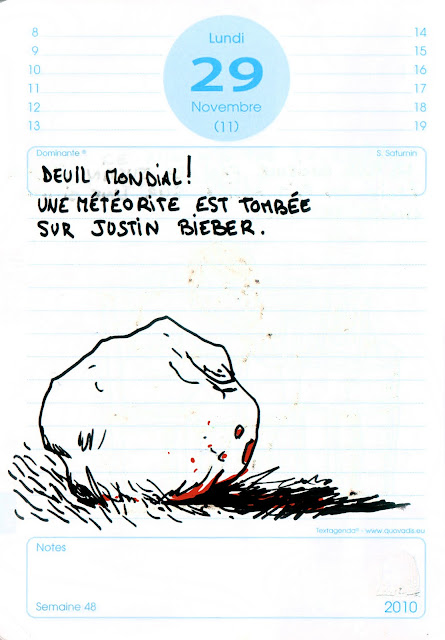 Lundi
29
Novembre
(11)
8 14
9 15
10 16
11 17
12 18
13 19
Dominante ® S. Saturnin
DEUIL MONDIAL!
UNE MÉTÉORITE EST TOMBÉE
SUR JUSTIN BIEBER.
Textagenda® - www.quovadis.eu
Notes
Semaine 48 2010